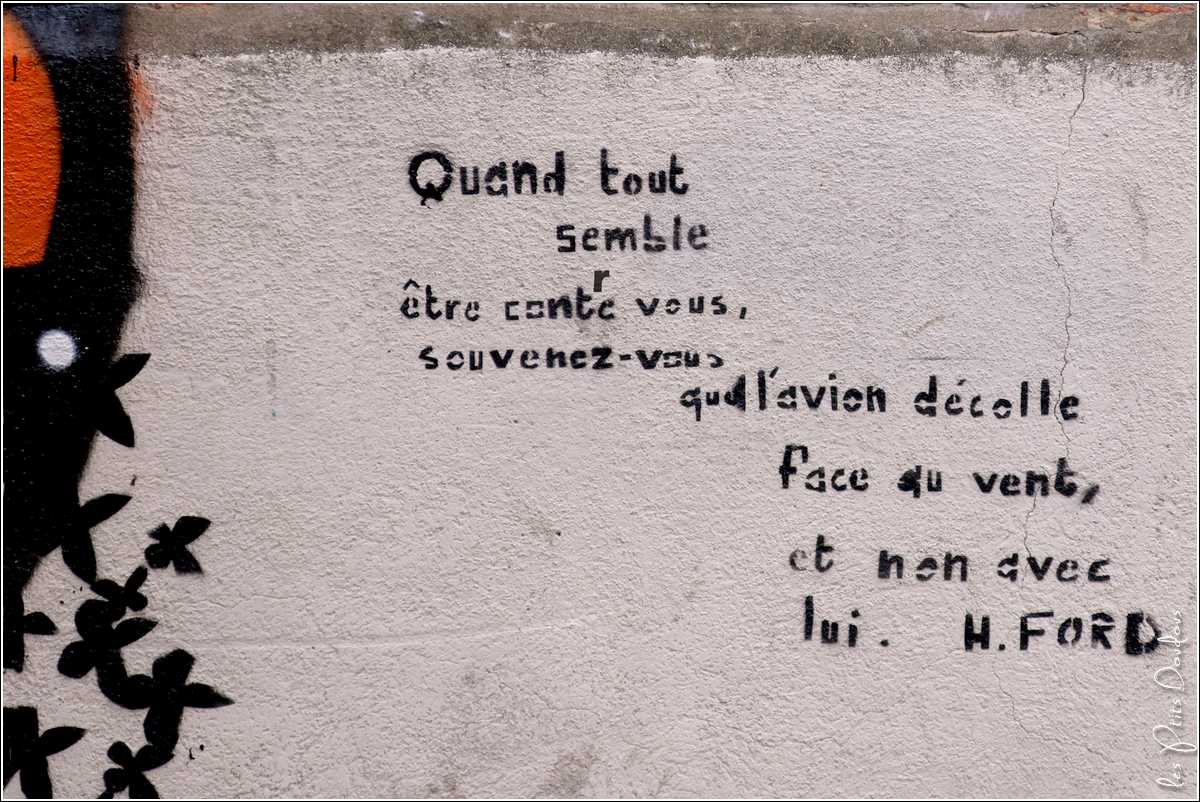 Quand tout
semble
r
être conte vous,
souvenez-vous
que l'avion décolle
face au vent,
et non avec
lui. H. FORD
les Ptits Doudous